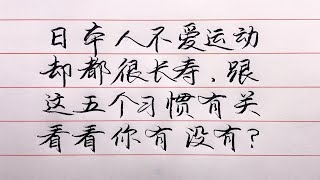 日本人不爱运动
却都很长寿，跟
这五个习惯有关
看看你有没有？